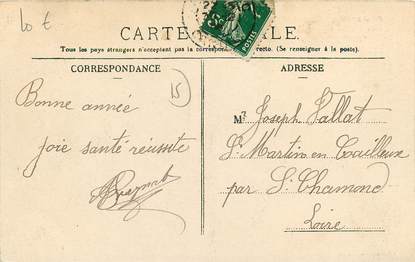 10 €
CARTE LE.
Tous les pays étrangers n'acceptent pas la correspon recto. (Se renseigner à la poste).
CORRESPONDANCE
15
Bonne année
Joie santé réussite
ADRESSE
Mr Joseph Fallat
St Martin en Coailleux
par St Chamond
Loire
5
POSTES